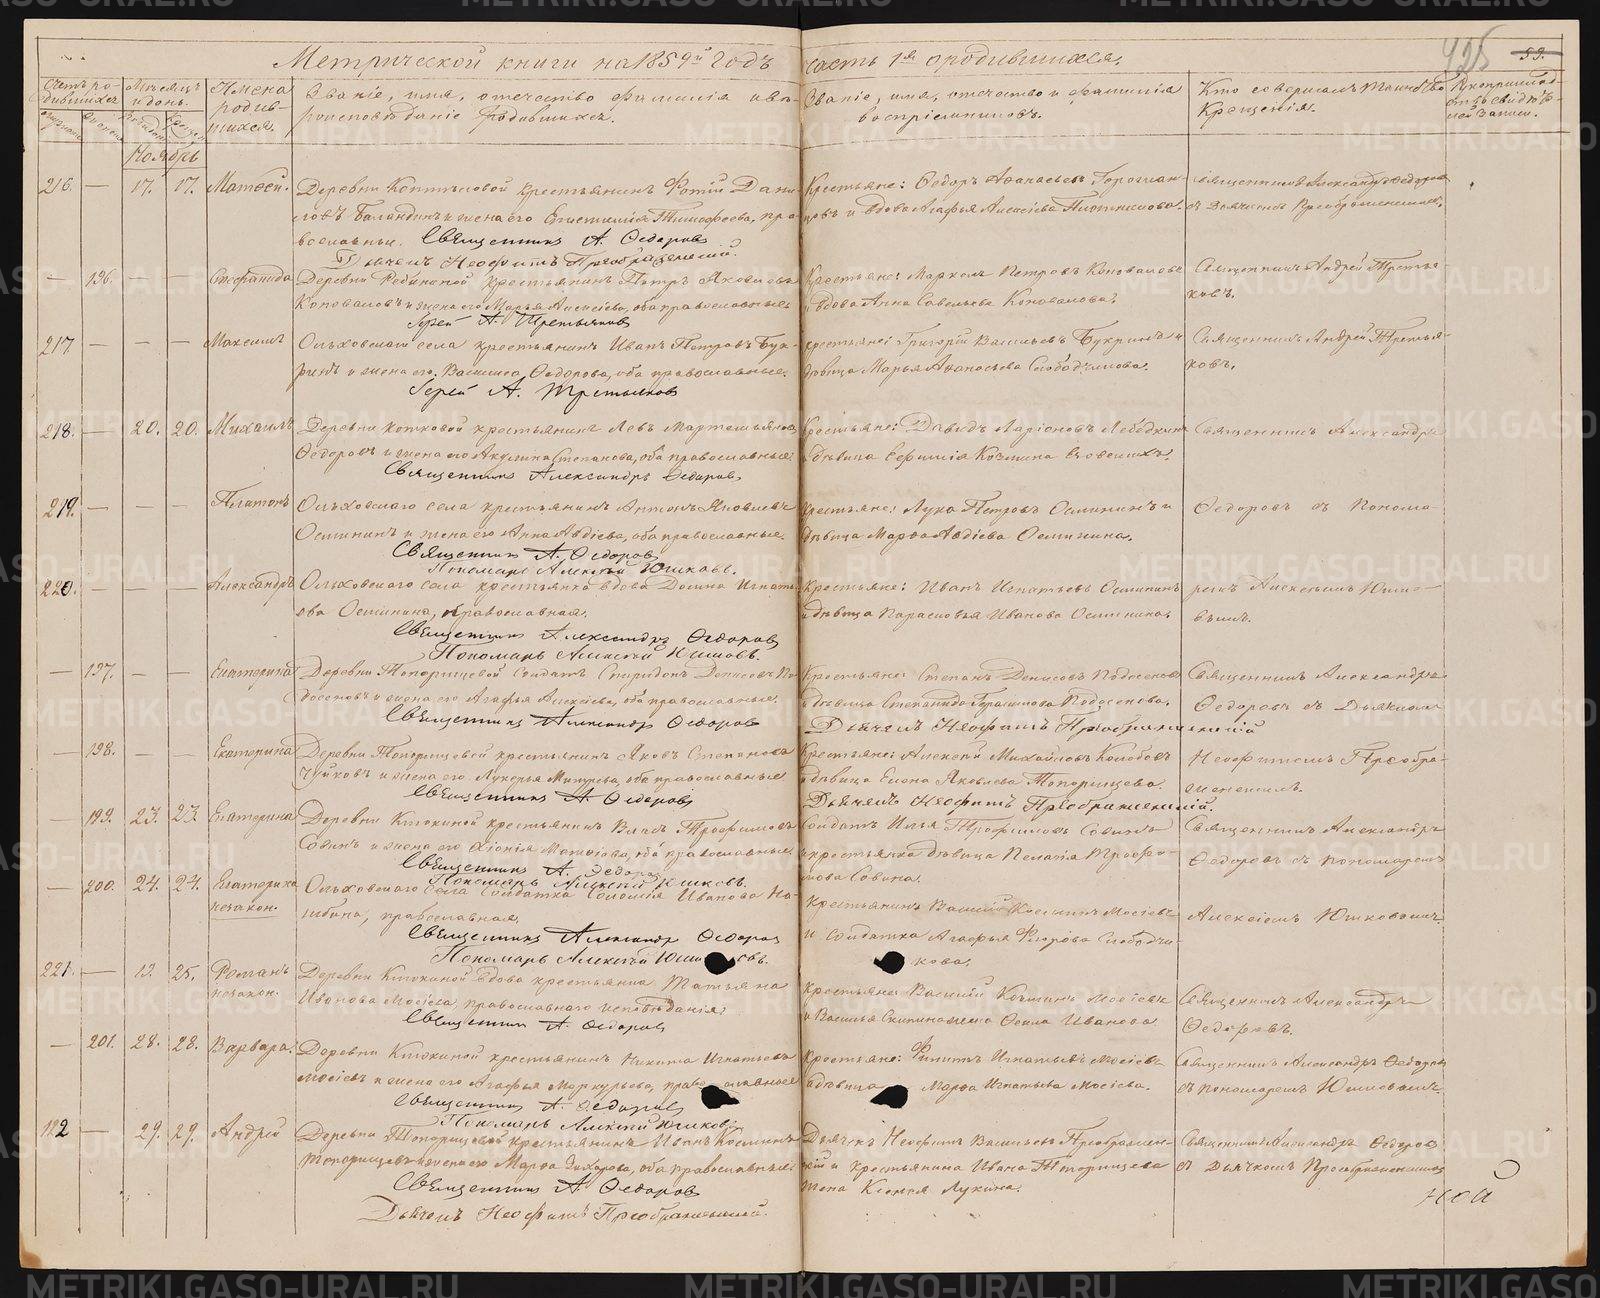 Метрической книги на 1859й годъ
часть 1я о родившихся.
425
53.
Счетъ родившихся
Мѣсяцъ и день.
Имена родившихся.
Званіе, имя, отечество фамилія и вѣроисповѣданіе родившихъ.
Званіе, имя, отечество и фамилія воспріемниковъ.
Кто совершалъ таинство Крещенія.
Ноябрь
216. — 17. 17. Матѳей.
крестьянинъ Фотій Дани-
ловъ Баландинъ и жена его Епистимія Тимофеева, пра-
вославные. Священникъ А. Ѳедоровъ
Дьячекъ Неофитъ Преображенскій.
Крестьяне: Ѳедоръ Аѳанасьевъ
и вдова Агафья Алексіева Плотникова.
Священникъ Александръ Ѳедоровъ
съ Дьячкомъ Преображенскимъ.
— 196. — — Стефанида
крестьянинъ Петръ Яковлевъ
Коноваловъ и жена его Марья Алексіева, оба православные.
Іерей А. Третьяковъ
Крестьяне: Маркелъ Петровъ Коноваловъ
и вдова Анна Савельева Коновалова.
Священникъ Андрей Третья-
ковъ.
217 — — — Максимъ
Ольховскаго села крестьянинъ Иванъ Петровъ Бук-
ринъ и жена его Василиса Ѳедорова, оба православные.
Іерей А. Третьяковъ
Крестьяне: Григорій Васильевъ Букринъ и
дѣвица Марья Аѳанасьева Слободчикова.
Священникъ Андрей Третья-
ковъ.
218. — 20. 20. Михаилъ
Деревни Котковой крестьянинъ Левъ Мартемьяновъ
Ѳедоровъ и жена его Акулина Степанова, оба православные.
Священникъ Александръ Ѳедоровъ
Крестьяне: Давидъ Ларіоновъ Лебедкинъ
и дѣвица Евфимія Козмина
Священникъ Александръ
219. — — — Платонъ
Ольховскаго села крестьянинъ Антонъ Яковлевъ
Осмининъ и жена его Анна Авдіева, оба православные.
Священникъ А. Ѳедоровъ
Пономарь Алексѣй Юшковъ.
Крестьяне: Лука Петровъ Осмининъ и
дѣвица Марѳа Авдіева Осминина.
Ѳедоровъ съ Понома-
220. — — — Александръ
Ольховскаго села крестьянка вдова Домна Игнать-
ева Осминина, православная.
Священникъ Александръ Ѳедоровъ
Пономарь Алексѣй Юшковъ.
Крестьяне: Иванъ Игнатьевъ Осмининъ
и дѣвица Парасковья Иванова Осминина.
ремъ Алексѣемъ Юшко-
вымъ.
— 197. — — Екатерина
Деревни Топорищевой солдатъ Спиридонъ Денисовъ По-
досеновъ и жена его Агафья Алексіева, оба православные.
Священникъ Александръ Ѳедоровъ
Крестьяне: Степанъ Денисовъ Подосеновъ
и дѣвица Степанида Герасимова Подосенова.
Дьячекъ Неофитъ Преображенскій
Священникъ Александръ
Ѳедоровъ съ Дьячкомъ
— 198. — — Екатерина
Деревни Топорищевой крестьянинъ Яковъ Степановъ
Чуйковъ и жена его Лукерья Мизурева, оба православные
Священникъ А. Ѳедоровъ
Крестьяне: Алексѣй Михайловъ Колобовъ
и дѣвица Елена Яковлева Топорищева.
Дьячекъ Неофитъ Преображенскій.
Неофитомъ Преобра-
женскимъ.
— 199. 23. 23. Екатерина
Деревни Клюкиной крестьянинъ Власъ Трофимовъ
Совинъ и жена его Хіонія Матвіева, оба православные.
Священникъ А. Ѳедоровъ
Пономарь Алексѣй Юшковъ.
Солдатъ Илья Трофимовъ Совинъ
и крестьянка дѣвица Пелагія Трофи-
мова Совина.
Священникъ Александръ
Ѳедоровъ съ пономаремъ
— 200. 24. 24. Екатерина
незакон.
Ольховскаго села солдатка Соломія Иванова
православная.
Священникъ Александр Ѳедоровъ
Пономарь Алексѣй Юшковъ.
Крестьянинъ Василій Козминъ Мосіевъ
и солдатка Агафья Флорова Слободчи-
кова.
Алексіемъ Юшковымъ.
221. — 19. 25. Романъ
незакон.
Деревни Клюкиной вдова крестьянка Татьяна
Иванова Мосіева православнаго исповѣданія.
Священникъ А. Ѳедоровъ
Крестьяне Василій Козминъ Мосіевъ
и Васильева Ѳекла Иванова
Священникъ Александръ
Ѳедоровъ.
— 201. 28. 28. Варвара.
Деревни Клюкиной крестьянинъ Никита Игнатьевъ
Мосіевъ и жена его Агафья Меркурьева, православные
Священникъ А. Ѳедоровъ
Пономарь Алексѣй Юшковъ
Крестьяне: Филипъ Игнатьевъ Мосіевъ
и дѣвица Марѳа Игнатьева Мосіева.
Священникъ Александръ Ѳедоровъ
съ пономаремъ Юшковымъ.
122 — 29. 29. Андрей
Деревни Топорищевой крестьянинъ Иванъ Козминъ
Топорищевъ и жена его Марѳа Захарова, оба православные.
Священникъ А. Ѳедоровъ
Дьячекъ Неофитъ Преображенскій.
Дьячекъ Неофитъ Васильевъ Преображен-
скій и крестьянина Ивана Топорищева
жена Ксенія Лукина.
Священникъ Александръ Ѳедоровъ
съ Дьячкомъ Преображенскимъ
METRIKI.GASO-URAL.RU